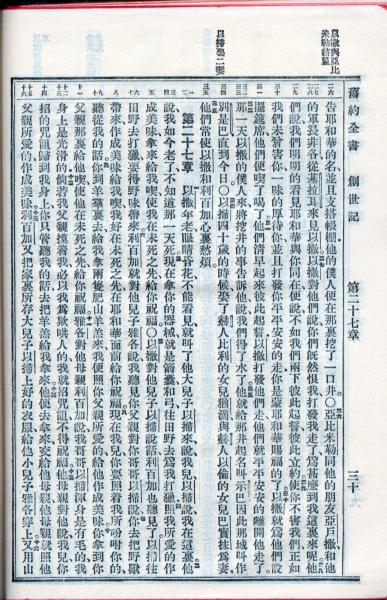 舊約全書 創世記 第二十七章 三十
以撒與亞比米勒結盟
以掃娶二妻
告耶和華的名並且支搭帳棚他的僕人便在那裏挖了一口井○亞比米勒同他的朋友亞戶撒和他
的軍長非各從基拉耳來見以撒以撒對他們說你們既然恨我打發我走了爲甚麼到我這裏來呢他
們說我們明明的看見耶和華與你同在便說不如我們兩下彼此起誓彼此立約使你不害我們正如
我們未曾害你一味的厚待你並且打發你平平安安的走你是蒙耶和華賜福的了以撒就爲他們設
擺筵席他們便喫了喝了他們清早起來彼此起誓以撒打發他們走他們就平平安安的離開他走了
那一天以撒的僕人來將挖井的事告訴他說我們得了水了他就給那井起名叫示巴因此那城叫作
別是巴直到今日○以掃四十歲的時候娶了赫人比利的女兒猶滴與赫人以倫的女兒巴實抹爲妻
他們常使以撒和利百加心裏愁煩
第二十七章 以撒年老眼睛昏花不能看見就叫了他大兒子以掃來說我兒以掃說我在這裏他
說我如今老了不知道那一天死現在拿你的器械就是箭囊和弓往田野去爲我打獵照我所愛的作
成美味拿來給我喫使我在未死之先給你祝福○以撒對他兒子以掃說話利百加也聽見了以掃往
田野去打獵要得野味帶來利百加就對他兒子雅各說我聽見你父親對你哥哥以掃說你去把野獸
帶來作成美味給我喫我好在未死之先在耶和華面前給你祝福現在我兒你要照着我所吩咐你的
聽從我的話你到羊羣裏去給我拿兩隻肥山羊羔來我便照你父親所愛的給他作成美味你拿到你
父親那裏給他喫使他在未死之先給你祝福雅各對他母親利百加說我哥哥以掃渾身是有毛的我
身上是光滑的倘若我父親摸着我必以我爲欺哄人的我就招咒詛不得祝福他母親對他說我兒你
招的咒詛歸到我身上你只管聽我的話去把羊羔給我拿來他便去拿來交給他母親他母親就照他
父親所愛的作成美味利百加又把家裏所存大兒子以掃上好的衣服給他小兒子雅各穿上又用山